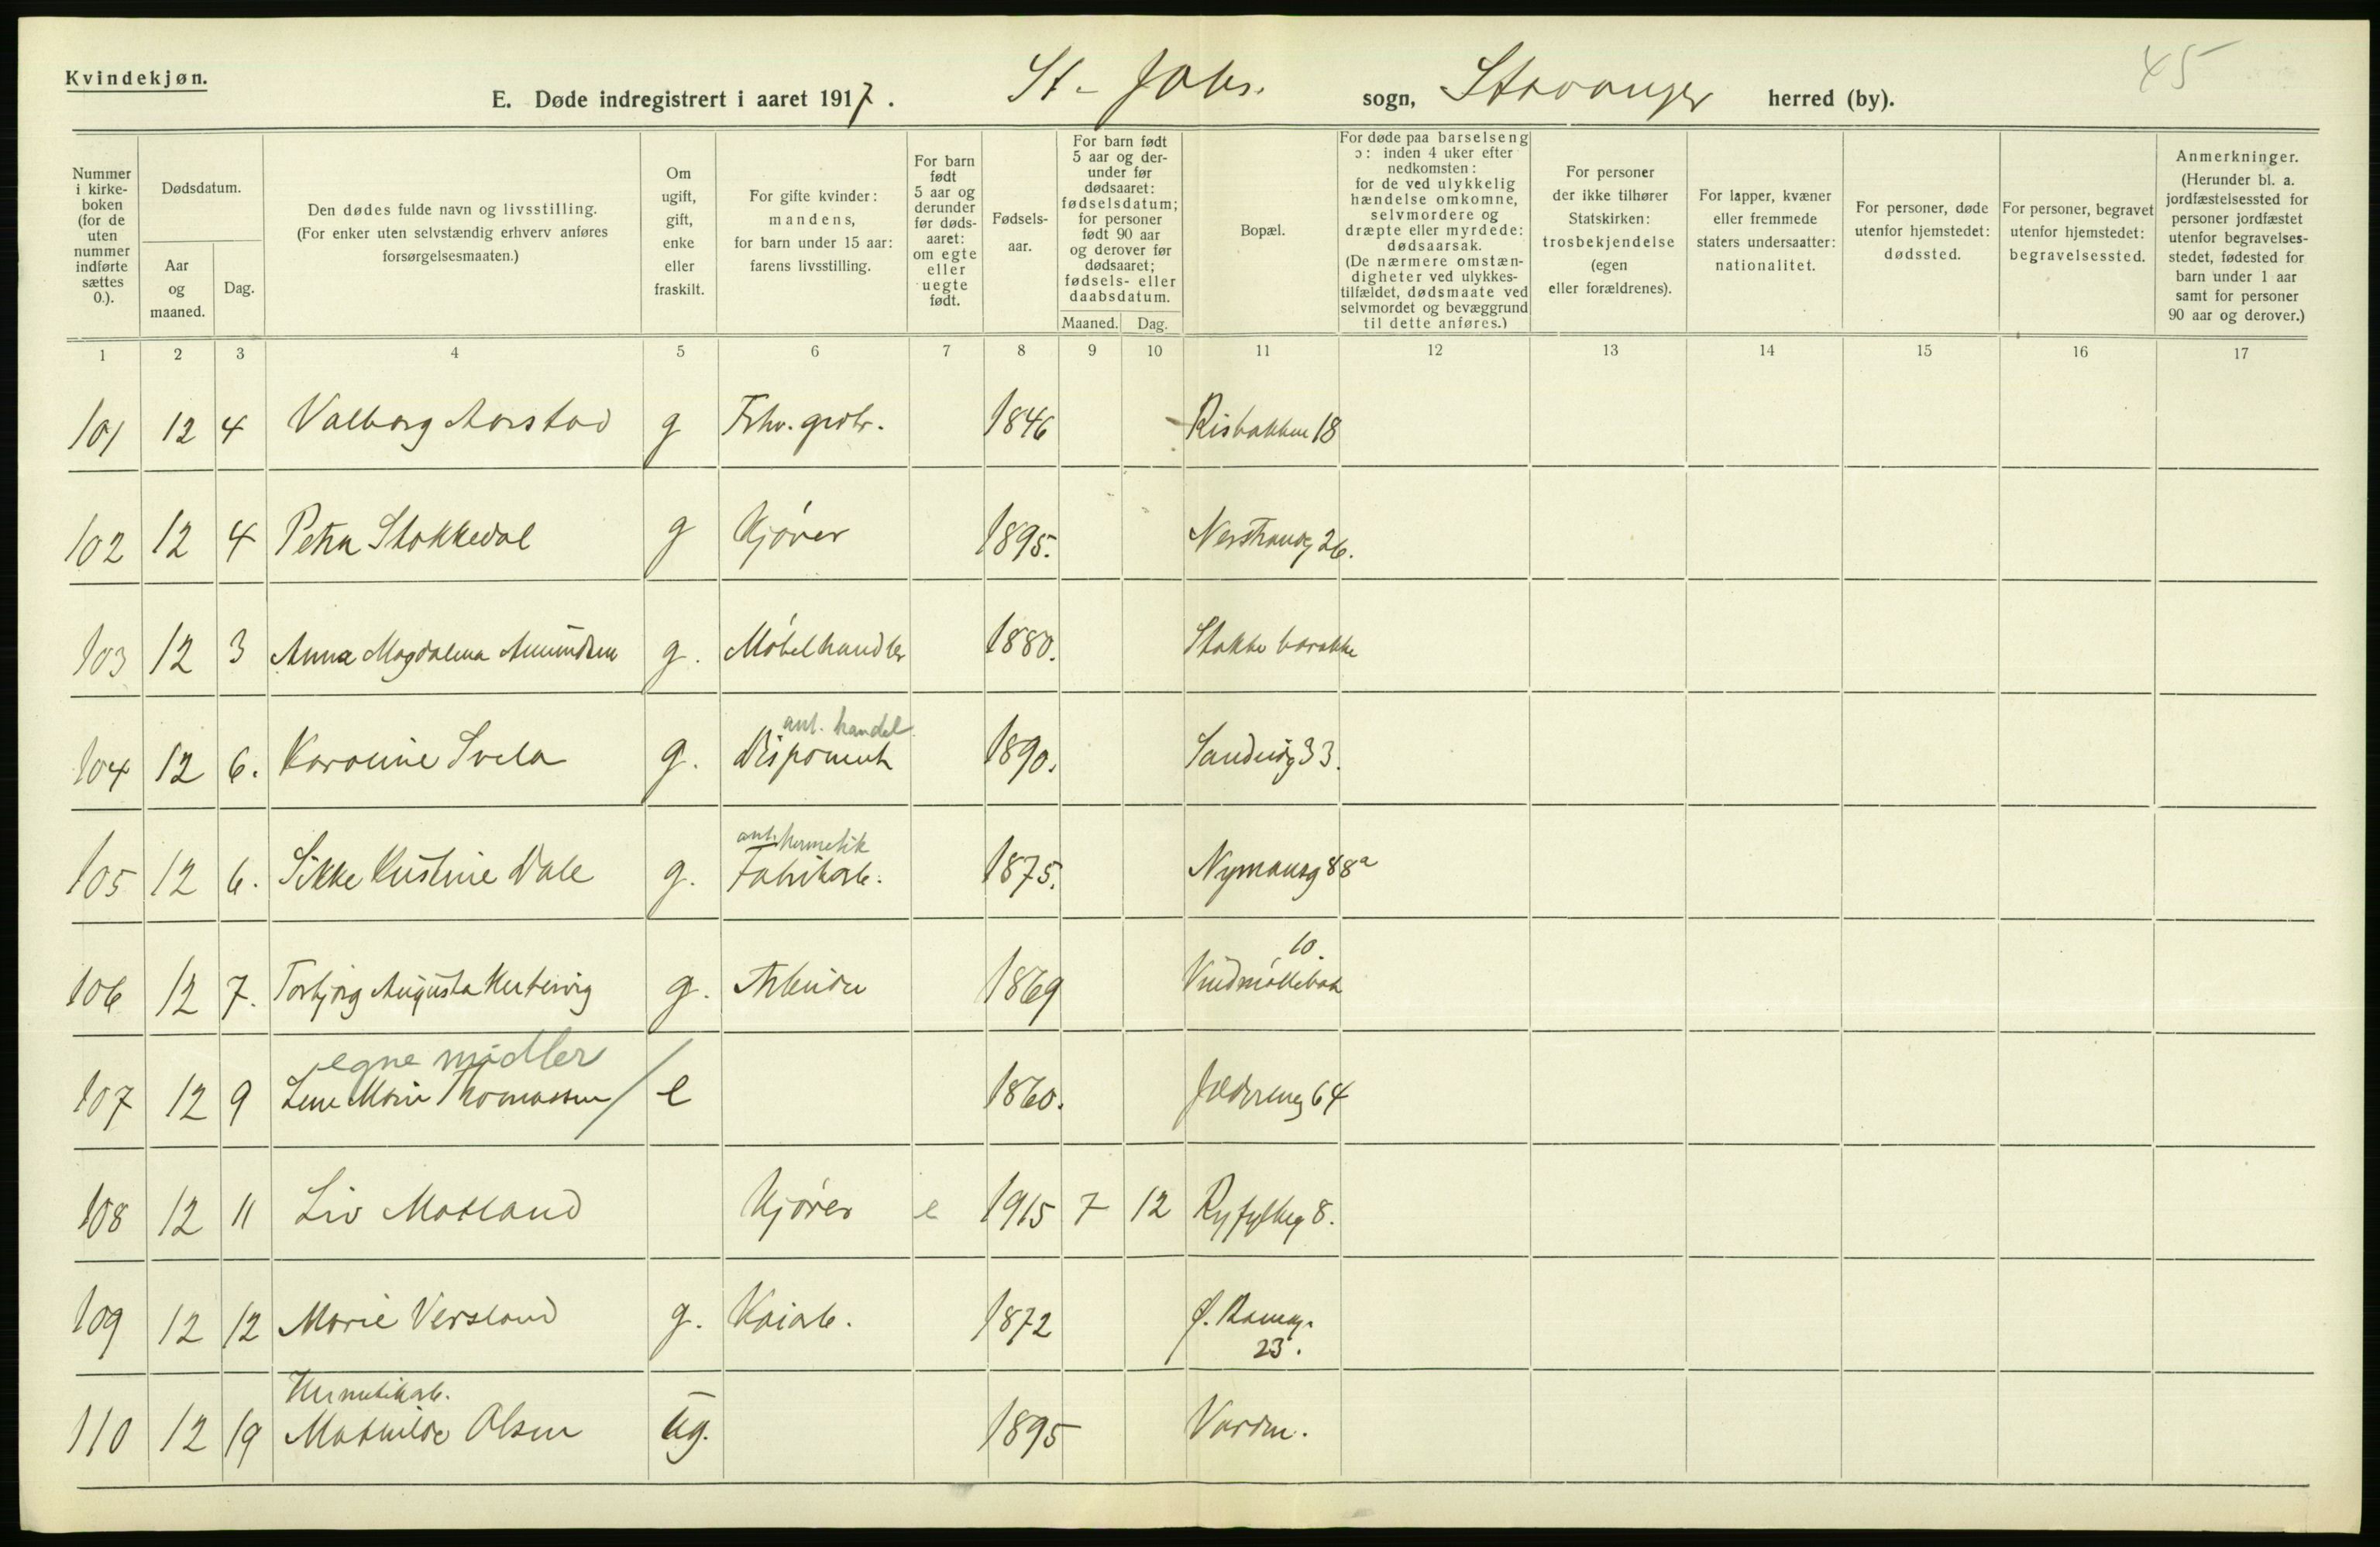 45
Kvindekjøn.
E. Døde indregistrert i aaret 1917. St. Johs. sogn, Stavanger herred (by).
Nummer i kirkeboken (for de uten nummer indførte sættes 0.).
Dødsdatum.
Aar og maaned.
Dag.
Den dødes fulde navn og livsstilling.
(For enker uten selvstændig erhverv anføres
forsørgelsesmaaten.)
Om ugift, gift, enke eller fraskilt.
For gifte kvinder: mandens, for barn under 15 aar: farens livsstilling.
For barn født 5 aar og derunder før dødsaaret: om egte eller uegte født.
Fødselsaar.
For barn født 5 aar og derunder før dødsaaret: fødselsdatum; for personer født 90 aar og derover før dødsaaret; fødsels- eller daabsdatum.
Maaned. Dag.
Bopæl.
For døde paa barselseng ɔ: inden 4 uker efter nedkomsten: for de ved ulykkelig hændelse omkomne, selvmordere og dræpte eller myrdede: dødsaarsak. (De nærmere omstændigheter ved ulykkestilfældet, dødsmaate ved selvmordet og bevæggrund til dette anføres.)
For personer der ikke tilhører Statskirken: trosbekjendelse (egen eller forældrenes).
For lapper, kvæner eller fremmede staters undersaatter: nationalitet.
For personer, døde utenfor hjemstedet: dødssted.
For personer, begravet utenfor hjemstedet: begravelsessted.
Anmerkninger. (Herunder bl. a. jordfæstelsessted for personer jordfæstet utenfor begravelsesstedet, fødested for barn under 1 aar samt for personer 90 aar og derover.)
1 2 3 4 5 6 7 8 9 10 11 12 13 14 15 16 17
101 12 4 Valborg Aarstad g Fhv. grdbr. 1846 Risbakken 18
102 12 4 Petra Stokkedal g Kjører 1895. Nerstrandg 26.
103 12 3 Anna Magdalena Amundsen g. Møbelhandler 1880. Stokke barakke
ant. handel
104 12 6. Karoline Svela g. Disponent 1890. Sandvig 33.
ant. hermetik
105 12 6. Sikke Kristine Dale g. Fabrikarb. 1875. Nymansg 88a
10.
106 12 7. Torbjørg Augusta Hertervig g. Arbeider 1869 Vindmøllebak
egne midler
107 12 9 Lene Marie Thomassen / e 1860. Jæderveg 64
108 12 11 Liv Matland Kjører e 1915 7 12 Ryfylkeg 8.
109 12 12 Marie Versland g. Kaiarb. 1872
23.
Hermetikarb.
110 12 19 Mathilde Olsen ug. 1895 Varden.